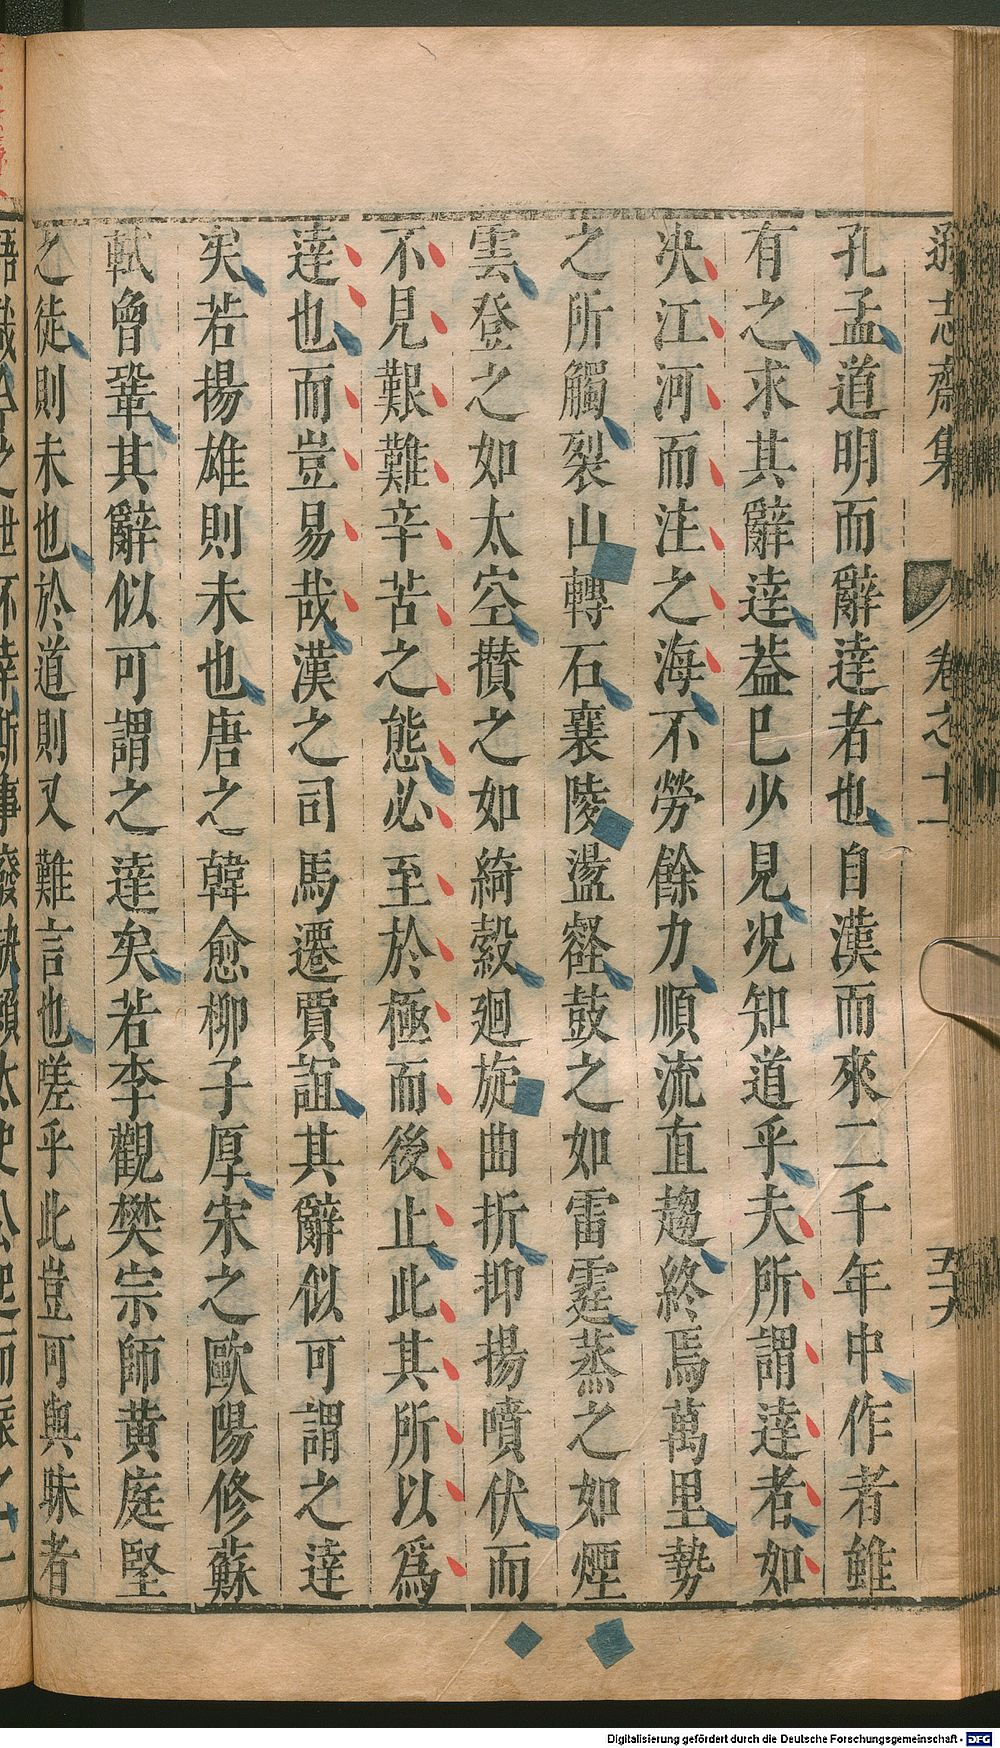 遜志齋集 卷之十一 五六
孔孟道明而辭達者也自漢而來二千年中作者雖
有之求其辭達葢已少見况知道乎夫所謂達者如
決江河而注之海不勞餘力順流直趨終焉萬里勢
之所觸裂山轉石襄陵盪壑鼓之如雷霆蒸之如煙
雲登之如太空攅之如綺縠廻旋曲折抑揚噴伏而
不見艱難辛苦之態必至於極而後止此其所以為
達也而豈易哉漢之司馬遷賈誼其辭似可謂之達
矣若揚雄則未也唐之韓愈柳子厚宋之歐陽修蘇
軾曾鞏其辭似可謂之達矣若李觀樊宗師黃庭堅
之徒則未也於道則又難言也嗟乎此豈可與昧者
Digitalisierung gefördert durch die Deutsche Forschungsgemeinschaft - DFG